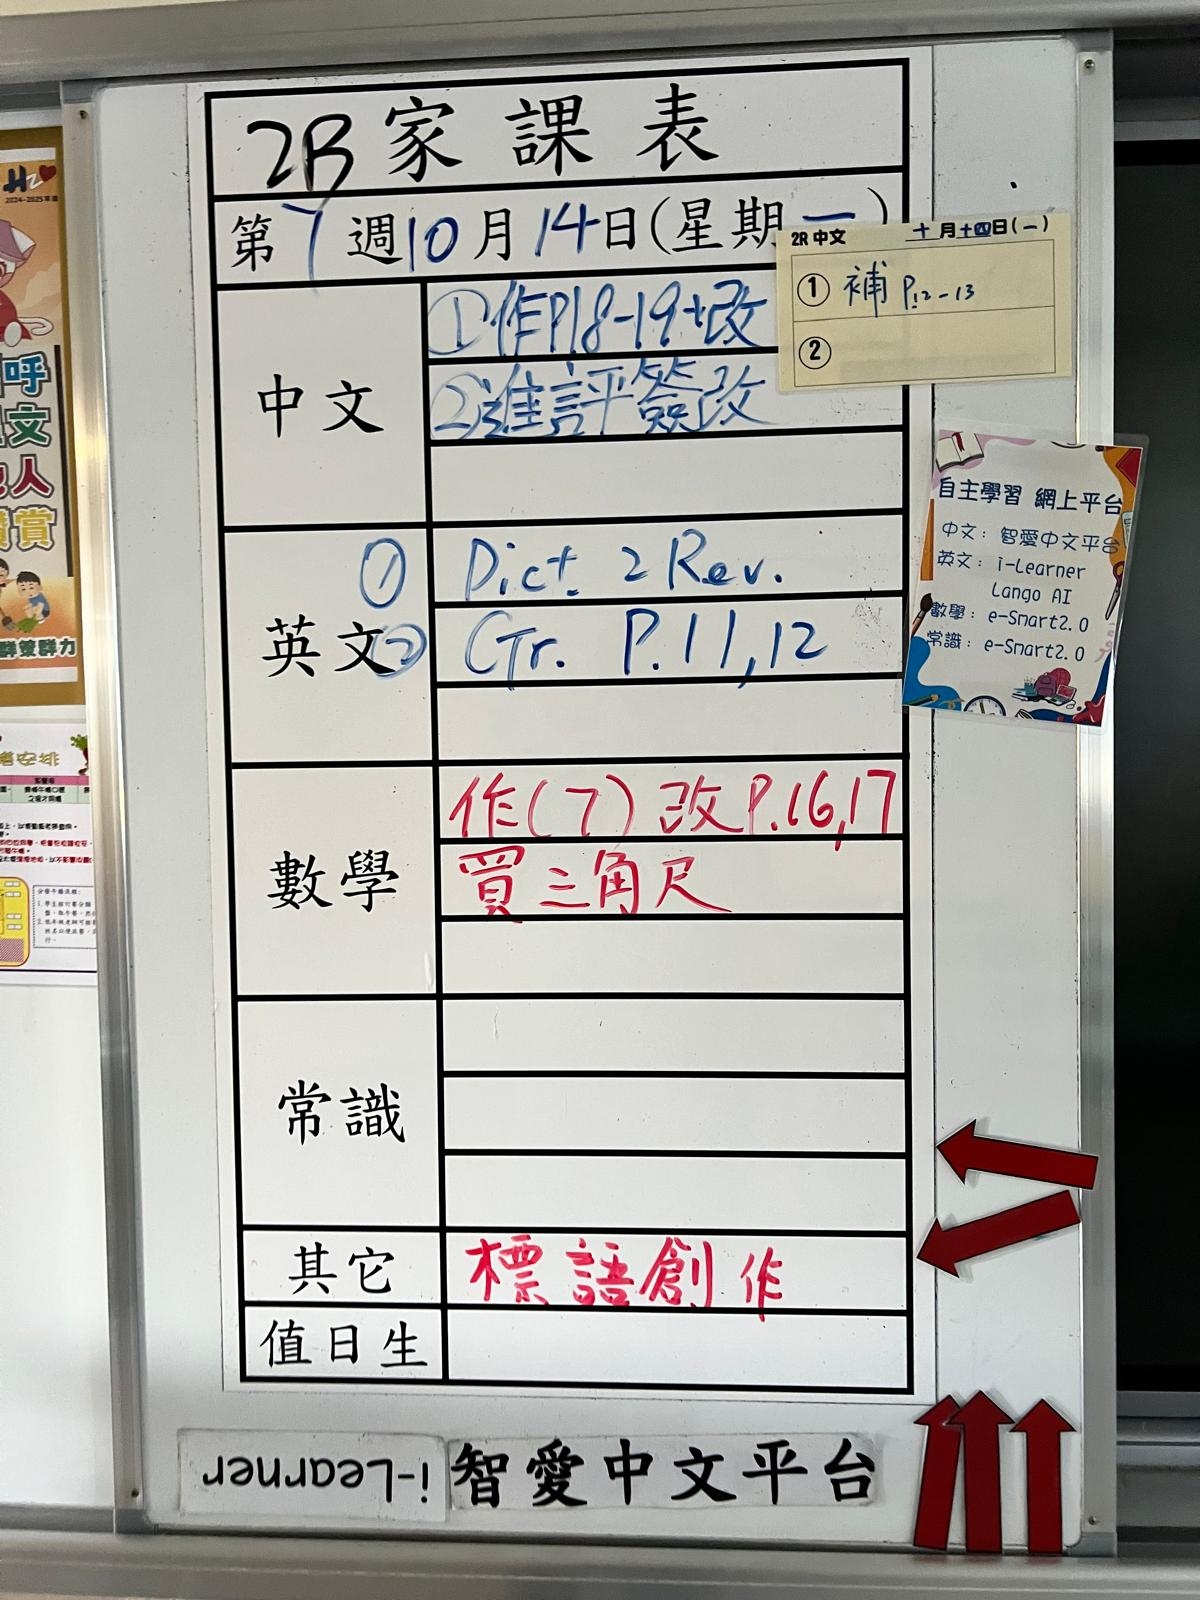 2R家課表
第7週10月14日(星期一)
中文
①作P.18-19+改
②進評簽改
2R 中文 十月十四日(一)
① 補 P.12-13
②
自主學習 網上平台
中文：智愛中文平台
英文：i-Learner
Lango AI
數學：e-Smart2.0
常識：e-Smart2.0
英文
① Dict 2 Rev.
② Gr. P.11,12
數學
作(7)改P.16,17
買三角尺
常識
其它
標語創作
值日生
i-Learner
智愛中文平台
2024-2025年度
呼
文
人
賞
群策群力
安排